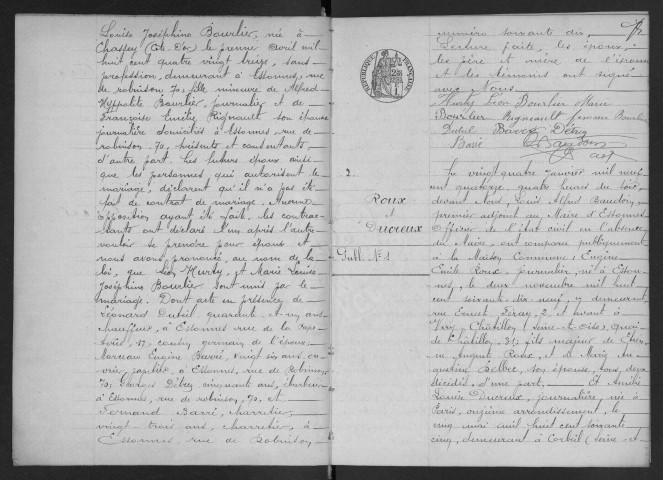 Louise Joséphine Bourlier, née à
Chassey (Côte d'Or) le premier Avril mil
huit cent quatre vingt treize, sans
profession, demeurant à Essonnes, rue
de robinson 70, fille mineure de Alfred
Hyppolite Bourlier, journalier et de
Françoise Emélie Rignault son épouse
journalière domiciliés à Essonnes, rue de
robinson 70, présents et consentants
d'autre part. Les futurs époux ainsi
que les personnes qui autorisent le
mariage, déclarent qu'il n'a pas été
fait de contrat de mariage. Aucune
opposition ayant été faite, les contrac-
tants ont déclaré l'un après l'autre
vouloir se prendre pour époux et
nous avons prononcé, au nom de la
loi, que Léon Hurty et Marie Louise
Joséphine Bourlier sont unis par le
mariage. Dont acte en présence de
Léonard Dubeil, quarante et un ans
chauffeur, à Essonnes rue de la Pape
terie, 17, cousin germain de l'époux,
Marceau Eugène Barré, vingt six ans, ou-
vrier papetier, à Essonnes, rue de Robinson,
70, Georges Débry, cinquante ans, charretier
à Essonnes, rue de robinson, 70, et
Fernand Barré, charretier,
vingt trois ans, charretier, à
Essonnes, rue de Robinson,
2.
Roux
et
Ducreux
Publ. N° 1
RÉPUBLIQUE FRANÇAISE
numéro soixante dix,
Lecture faite, les époux,
les père et mère de l'épouse
et les témoins ont signé
avec Nous.
Hurty Léon Bourlier Marie
Bourlier Rigneault femme Bourlier
Dubeil Barré Débry
Barré Baudon
Le vingt quatre Janvier mil neuf
cent quatorze, quatre heures du soir,
devant Nous, Louis Alfred Baudon,
premier adjoint au Maire d'Essonnes
Officier de l'état civil en l'absence
du Maire, ont comparu publiquement
à la Maison Commune: Eugène
Emile Roux, journalier, né à Esson-
nes, le deux novembre mil huit
cent soixante dix neuf, y demeurant
rue Ernest Feray, 2, et avant à
Viry Châtillon (Seine et Oise) quai
de Châtillon, 31, fils majeur de Etien-
ne August Roux, et de Marie Au-
gustine Belloc, son épouse, tous deux
décédés, d'une part, Et Amélie
Louise Ducreux, journalière, née à
Paris, onzième arrondissement, le
cinq mai mil huit cent soixante
cinq, demeurant à Corbeil (Seine et